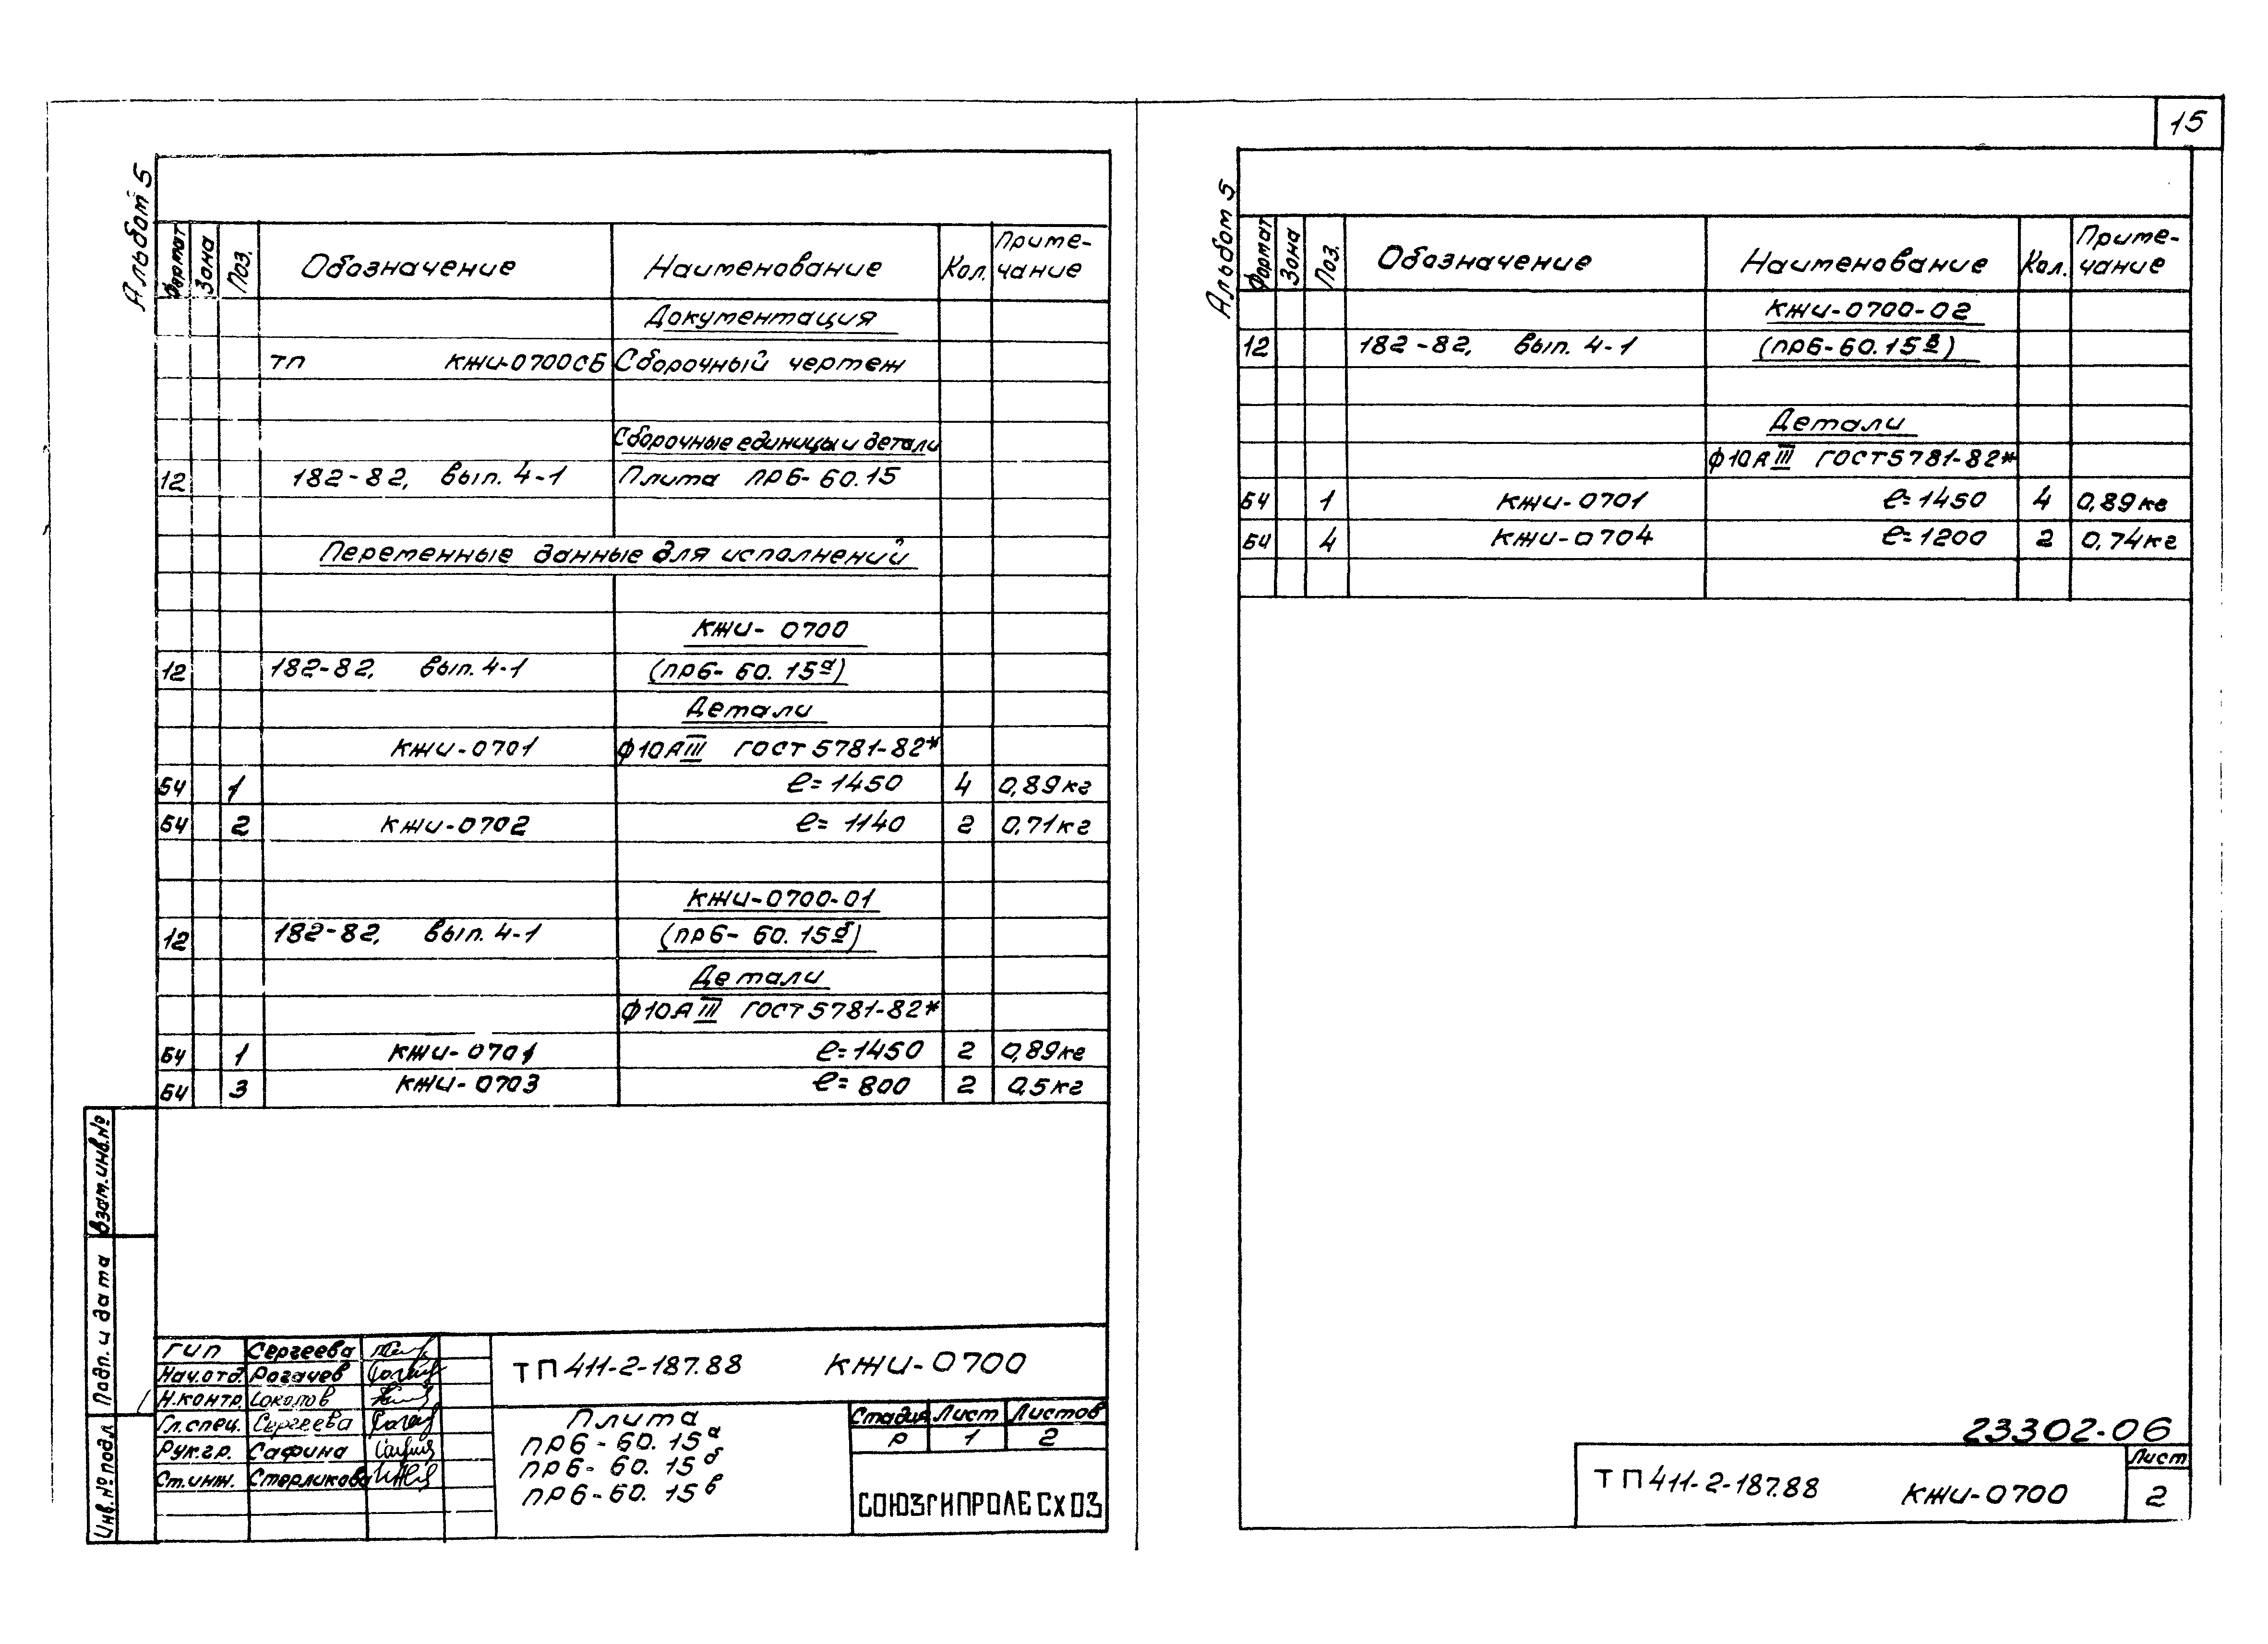 15
Альбом 5
Формат Зона Поз. Обозначение Наименование Кол. Приме-чание
Документация
ТП КЖИ-0700СБ Сборочный чертеж
Сборочные единицы и детали
12 182-82, вып. 4-1 Плита пр6-60.15
Переменные данные для исполнений
КЖИ-0700
12 182-82, вып. 4-1 (пр6-60.15а)
Детали
КЖИ-0701 ф10АIII ГОСТ 5781-82*
БЧ 1 ℓ=1450 4 0,89кг
БЧ 2 КЖИ-0702 ℓ=1140 2 0,71кг
КЖИ-0700-01
12 182-82, вып. 4-1 (пр6-60.15б)
Детали
ф10АIII ГОСТ 5781-82*
БЧ 1 КЖИ-0701 ℓ=1450 2 0,89кг
БЧ 3 КЖИ-0703 ℓ=800 2 0,5кг
Взам.инв.№
Подп. и дата
Инв.№ подл.
ГИП Сергеева
Нач.отд. Рогачев
Н.контр. Соколов
Гл.спец. Сергеева
Рук.гр. Сафина
Ст.инж. Стерликова
ТП 411-2-187.88 КЖИ-0700
Плита
пр6-60.15а
пр6-60.15б
пр6-60.15в
Стадия Лист Листов
Р 1 2
СОЮЗГИПРОЛЕСХОЗ
Альбом 5
Формат Зона Поз. Обозначение Наименование Кол. Приме-чание
КЖИ-0700-02
12 182-82, вып. 4-1 (пр6-60.15в)
Детали
ф10АIII ГОСТ 5781-82*
БЧ 1 КЖИ-0701 ℓ=1450 4 0,89кг
БЧ 4 КЖИ-0704 ℓ=1200 2 0,74кг
23302-06
ТП 411-2-187.88 КЖИ-0700
Лист
2